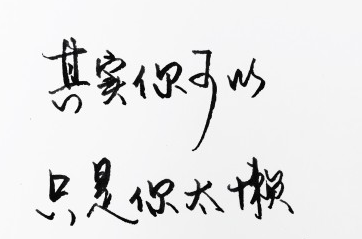 其实你可以
只是你太懒